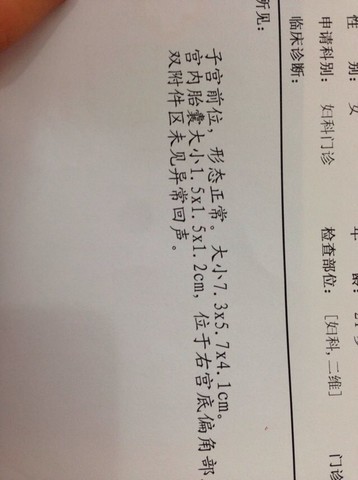 性 别: 女 年 龄:
申请科别: 妇科门诊 检查部位: [妇科,二维] 门诊
临床诊断:
所见:
子宫前位, 形态正常。大小7.3x5.7x4.1cm。
宫内胎囊大小1.5x1.5x1.2cm, 位于右宫底偏角部
双附件区未见异常回声。